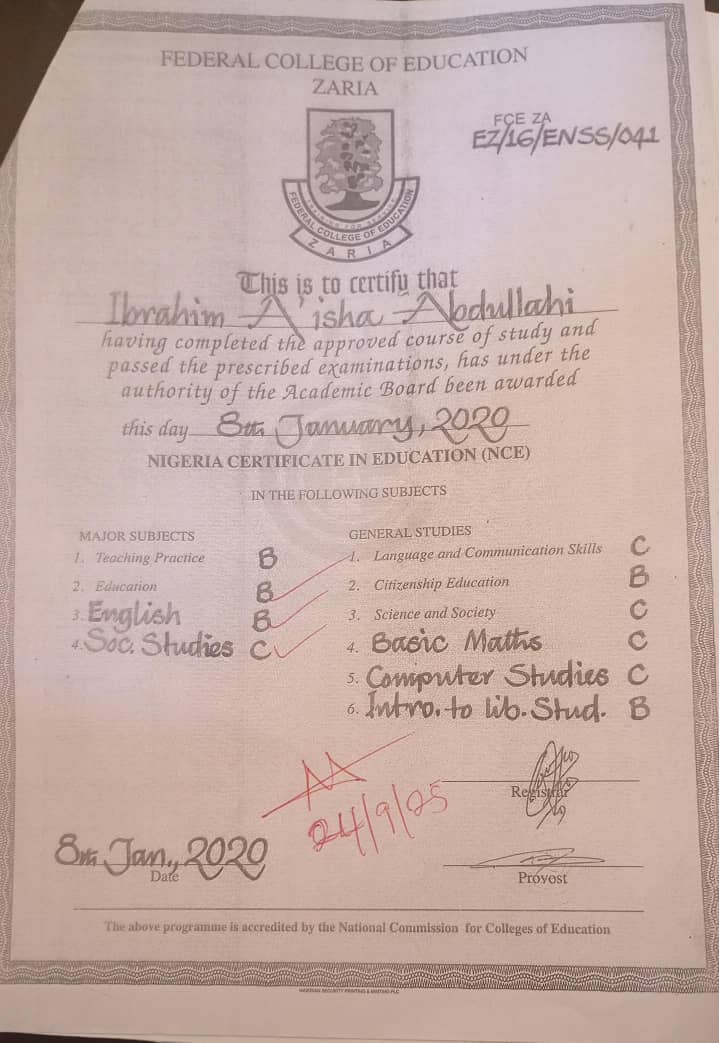 FEDERAL COLLEGE OF EDUCATION
ZARIA
FCE ZA
EZ/16/ENSS/041
FEDERAL COLLEGE OF EDUCATION
ZARIA
This is to certify that
Ibrahim A'isha Abdullahi
having completed the approved course of study and
passed the prescribed examinations, has under the
authority of the Academic Board been awarded
this day 8th January, 2020
NIGERIA CERTIFICATE IN EDUCATION (NCE)
IN THE FOLLOWING SUBJECTS
MAJOR SUBJECTS
1. Teaching Practice B
2. Education B
3. English B
4. Soc. Studies C
GENERAL STUDIES
1. Language and Communication Skills C
2. Citizenship Education B
3. Science and Society C
4. Basic Maths C
5. Computer Studies C
6. Intro. to lib. Stud. B
24/9/25
Registrar
8th Jan., 2020
Date
Provost
The above programme is accredited by the National Commission for Colleges of Education